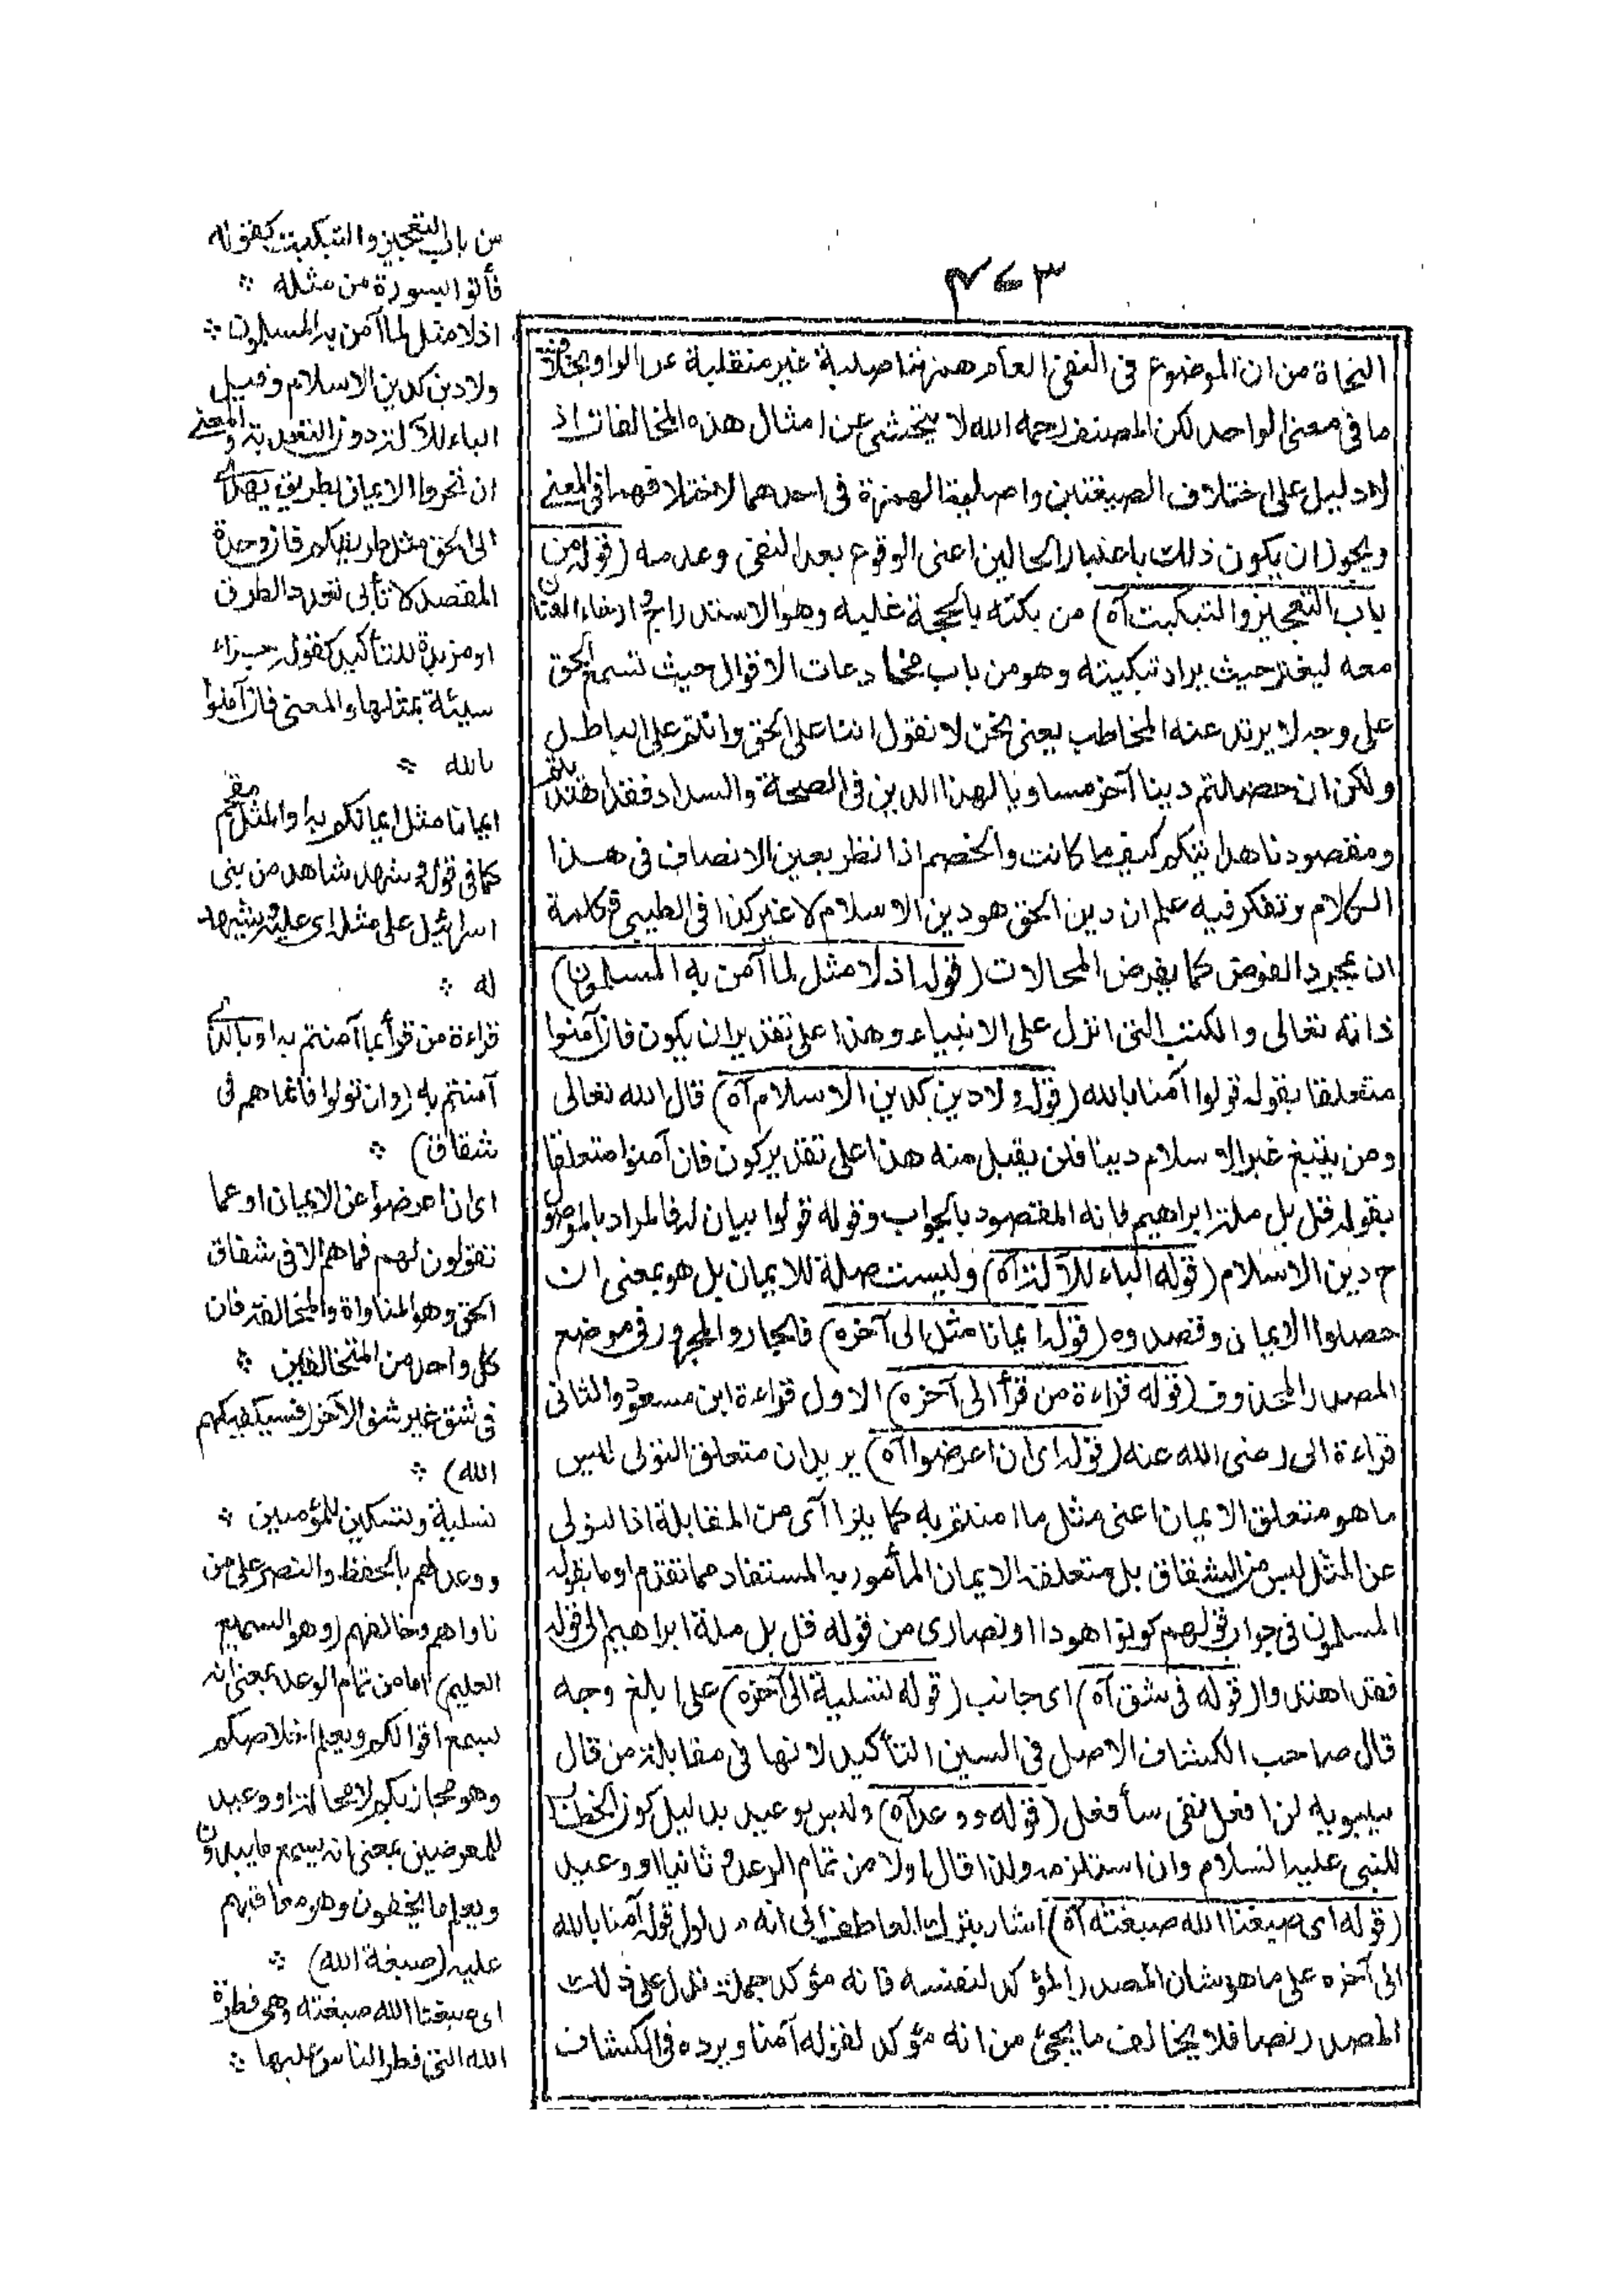 ٣٧٣
النحاة من ان الموضوع فى النفى العام همزتها اصلية غير منقلبة عن الواو بخلاف
ما فى معنى الواحد لكن المصنف رحمه الله لا يتحشى عن امثال هذه المخالفات اذ
لا دليل على اختلاف الصيغتين واصلية الهمزة فى احدهما لاختلافهما فى المعنى
ويجوز ان يكون ذلك باعتبار الحالين اعنى الوقوع بعد النفى وعدمه (قوله من
باب التعجيز والتبكيت آه) من بكته بالحجة غلبه وهو الاستدراج وارخاء العنان
معه ليعثر حيث يراد تبكيته وهو من باب مخادعات الاقوال حيث تسمع الحق
على وجه لا يرتد عنه المخاطب يعنى نحن لا نقول اننا على الحق وانتم على الباطل
ولكن ان حصلتم دينا آخر مساويا لهذا الدين فى الصحة والسداد فقد اهتديتم
ومقصودنا هدايتكم كيف ما كانت والخصم اذا نظر بعين الانصاف فى هذا
الكلام وتفكر فيه علم ان دين الحق هو دين الاسلام لا غير كذا فى الطيبى فكلمة
ان بمجرد الفرض كما يفرض المحالات (قوله اذ لا مثل لما آمن به المسلمون)
ذاته تعالى والكتب التى انزل على الانبياء وهذا على تقدير ان يكون فان آمنوا
متعلقا بقوله قولوا آمنا بالله (قوله ولا دين كدين الاسلام آه) قال الله تعالى
ومن يبتغ غير الاسلام دينا فلن يقبل منه هذا على تقدير كون فان آمنوا متعلقا
بقوله قل بل ملة ابراهيم فانه المقصود بالجواب وقوله قولوا بيان له فالمراد بالموصول
ح دين الاسلام (قوله الباء للآلة آه) وليست صلة للايمان بل هو بمعنى ان
حصلوا الايمان وقصدوه (قوله ايمانا مثل الى آخره) فالجار والمجرور فى موضع
المصدر المحذوف (قوله قراءة من قرأ الى آخره) الاول قراءة ابن مسعود والثانى
قراءة ابى رضى الله عنه (قوله اى ان اعرضوا آه) يريد ان متعلق التولى ليس
ما هو متعلق الايمان اعنى مثل ما امنتم به كما يتراآى من المقابلة اذ التولى
عن المثل ليس من الشقاق بل متعلقه الايمان المأمور به المستفاد مما تقدم او ما يقوله
المسلمون فى جواب قولهم كونوا هودا او نصارى من قوله قل بل ملة ابراهيم الى قوله
فقد اهتدوا (قوله فى شق آه) اى جانب (قوله تسلية الى آخره) على ابلغ وجه
قال صاحب الكشاف الاصل فى السين التأكيد لانها فى مقابلة لن قال
سيبويه لن افعل نفى سأفعل (قوله ووعد آه) وليس بوعيد بدليل كون الخطاب
للنبى عليه السلام وان استلزمه ولذا قال اولا من تمام الوعد وثانيا او وعيد
(قوله اى صبغنا الله صبغته آه) اشار بترك العاطف الى انه مدلول قوله آمنا بالله
الى آخره على ما هو شان المصدر المؤكد لنفسه فانه مؤكد جملة تدل على ذلك
المصدر نصا فلا يخالف ما يجئ من انه مؤكد لقوله آمنا ويرده فى الكشاف
من باب التعجيز والتبكيت كقوله
فأتوا بسورة من مثله ؞
اذ لا مثل لما آمن به المسلمون ؞
ولا دين كدين الاسلام وقيل
الباء للآلة دون التعدية والمعنى
ان تحروا الايمان بطريق يهدى
الى الحق مثل طريقكم فان وحدة
المقصد لا تأبى تعدد الطرق
او مزيدة للتأكيد كقوله جزاء
سيئة بمثلها والمعنى فان آمنوا
بالله ؞
ايمانا مثل ايمانكم به او المثل مقحم
كما فى قوله وشهد شاهد من بنى
اسرائيل على مثله اى عليه ويشهد
له ؞
قراءة من قرأ بما آمنتم به او بالذى
آمنتم به (وان تولوا فانما هم فى
شقاق) ؞
اى ان اعرضوا عن الايمان او عما
تقولون لهم فما هم الا فى شقاق
الحق وهو المناواة والمخالفة فان
كل واحد من المتخالفين ؞
فى شق غير شق الآخر (فسيكفيكهم
الله) ؞
تسلية وتسكين للمؤمنين ؞
ووعد لهم بالحفظ والنصر على من
ناواهم وخالفهم (وهو السميع
العليم) اما من تمام الوعد بمعنى انه
يسمع اقوالكم ويعلم اخلاصكم
وهو مجازيكم لا محالة او وعيد
للمعرضين بمعنى انه يسمع ما يبدون
ويعلم ما يخفون وهو معاقبهم
عليه (صبغة الله) ؞
اى صبغنا الله صبغته وهى فطرة
الله التى فطر الناس عليها ؞